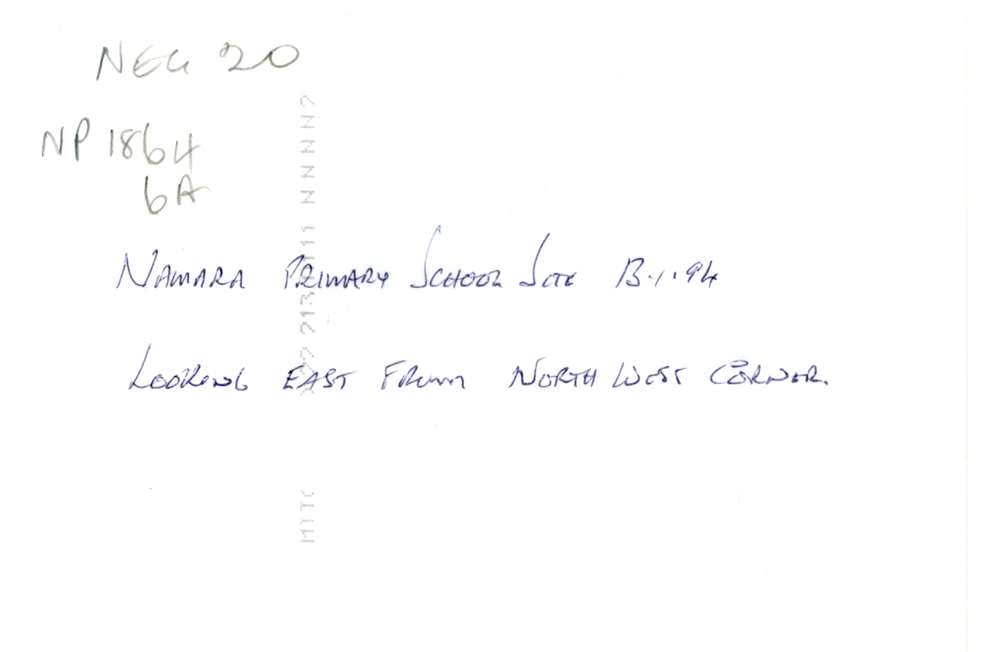 NEG 20
NP 1864
6A
NAMARA PRIMARY SCHOOL SITE 13.1.94
LOOKING EAST FROM NORTH WEST CORNER.